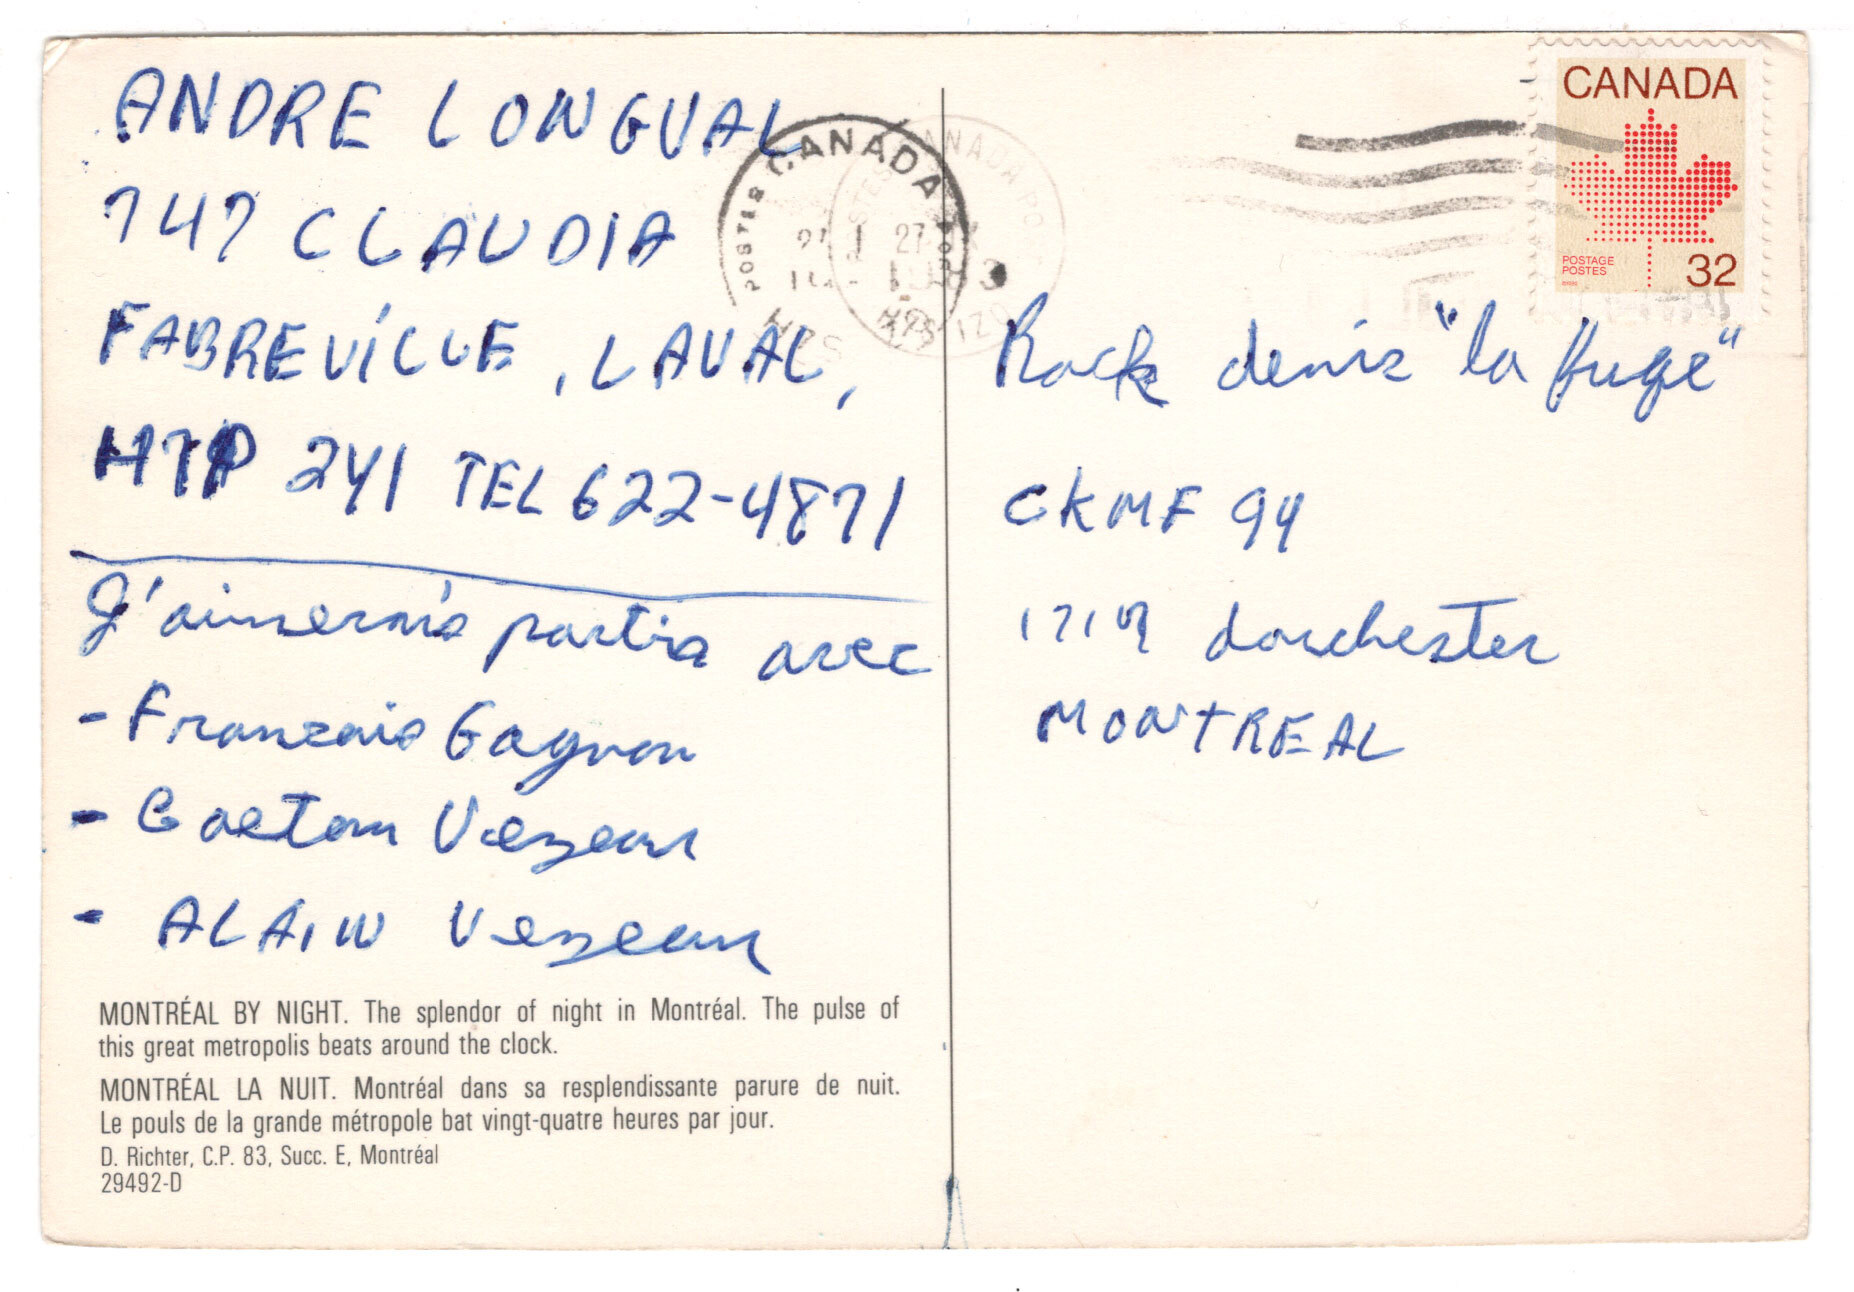 ANDRE LONGVAL
747 CLAUDIA
FABREVILLE, LAVAL,
H7P 2Y1 TEL 622-4871
J'aimerais partir avec
- Francais Gagnon
- Gaetan Vezeau
- ALAIN Vezeau
MONTRÉAL BY NIGHT. The splendor of night in Montréal. The pulse of
this great metropolis beats around the clock.
MONTRÉAL LA NUIT. Montréal dans sa resplendissante parure de nuit.
Le pouls de la grande métropole bat vingt-quatre heures par jour.
D. Richter, C.P. 83, Succ. E, Montréal
29492-D
CANADA
27
CANADA
POSTAGE
POSTES
32
Rock denis "la fuge"
CKMF 94
1717 dorchester
MONTREAL